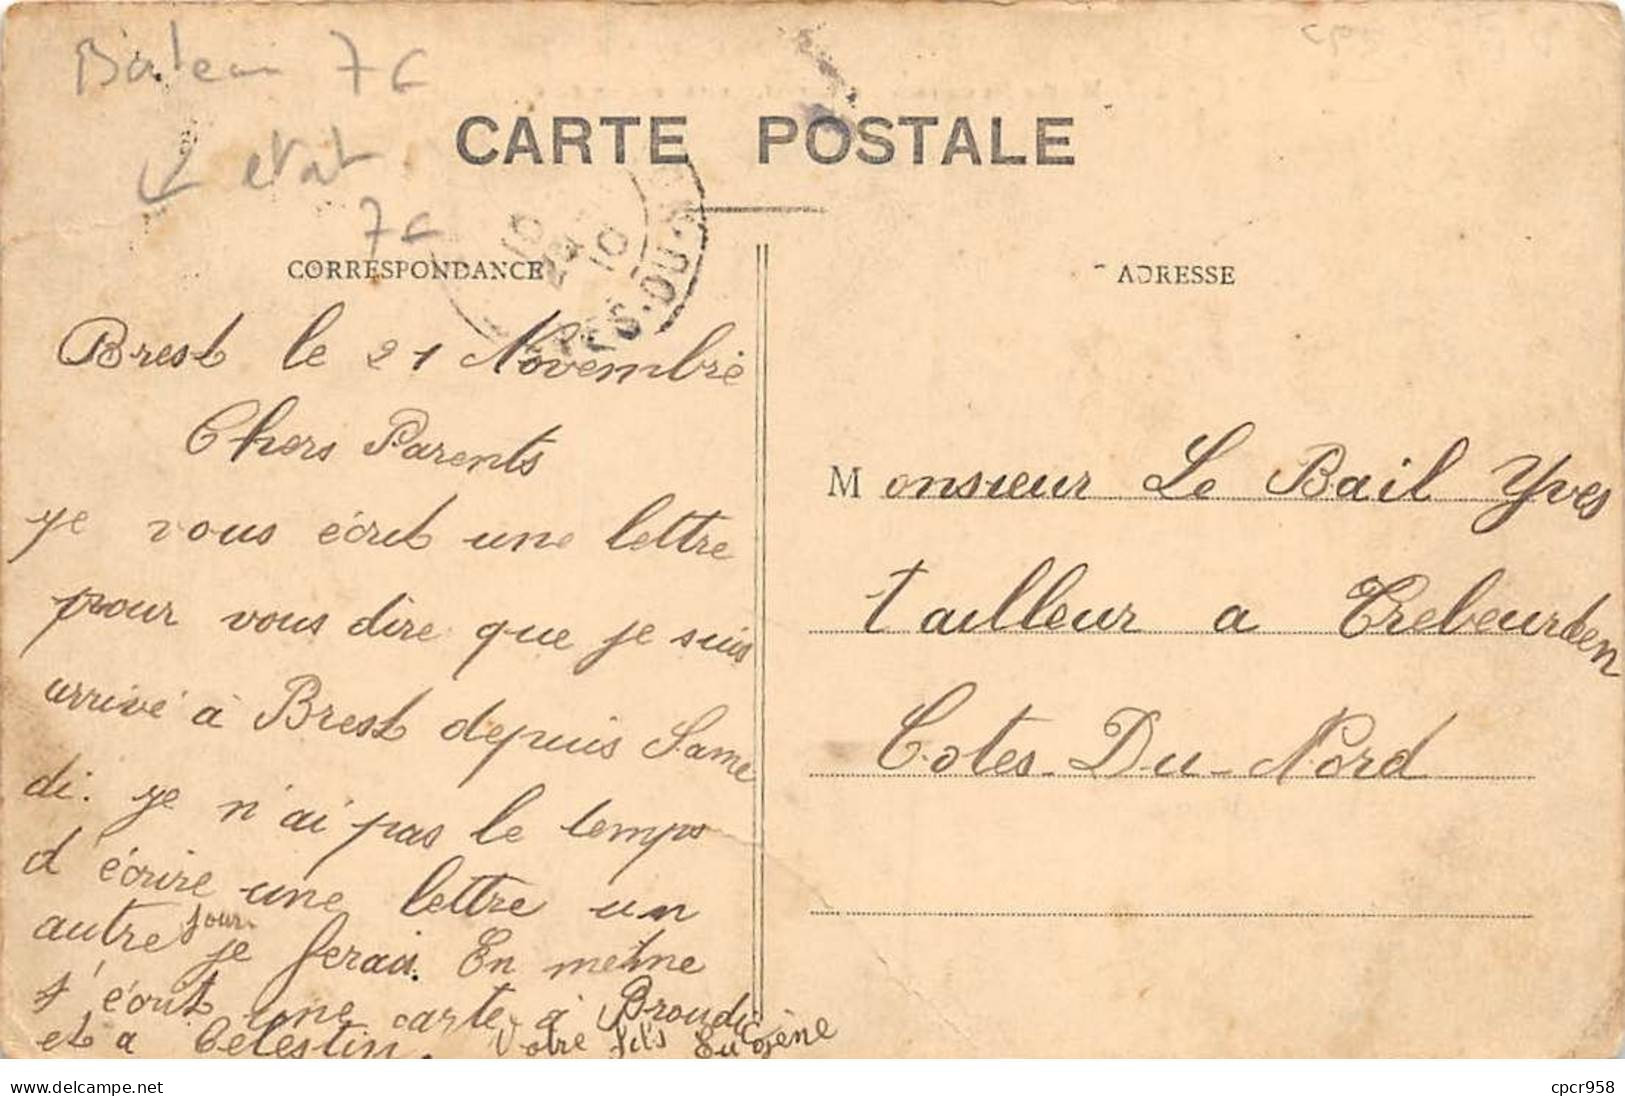 Bateau 7c
etat
7c
CARTE POSTALE
10
10
CÔTES-DU-N
CORRESPONDANCE
ADRESSE
Brest le 21 Novembre
Chers Parents
je vous écrit une lettre
pour vous dire que je suis
arrivé à Brest depuis Same
di. je n'ai pas le temps
d'écrire une lettre un
autre jour je ferais. En même
t'écrit une carte à Broudic
et a Célestin. Votre fils Eugène
Monsieur Le Bail Yves
tailleur a Trebeurden
Cotes-Du-Nord
cpcr958.delcampe.net
cpcr958